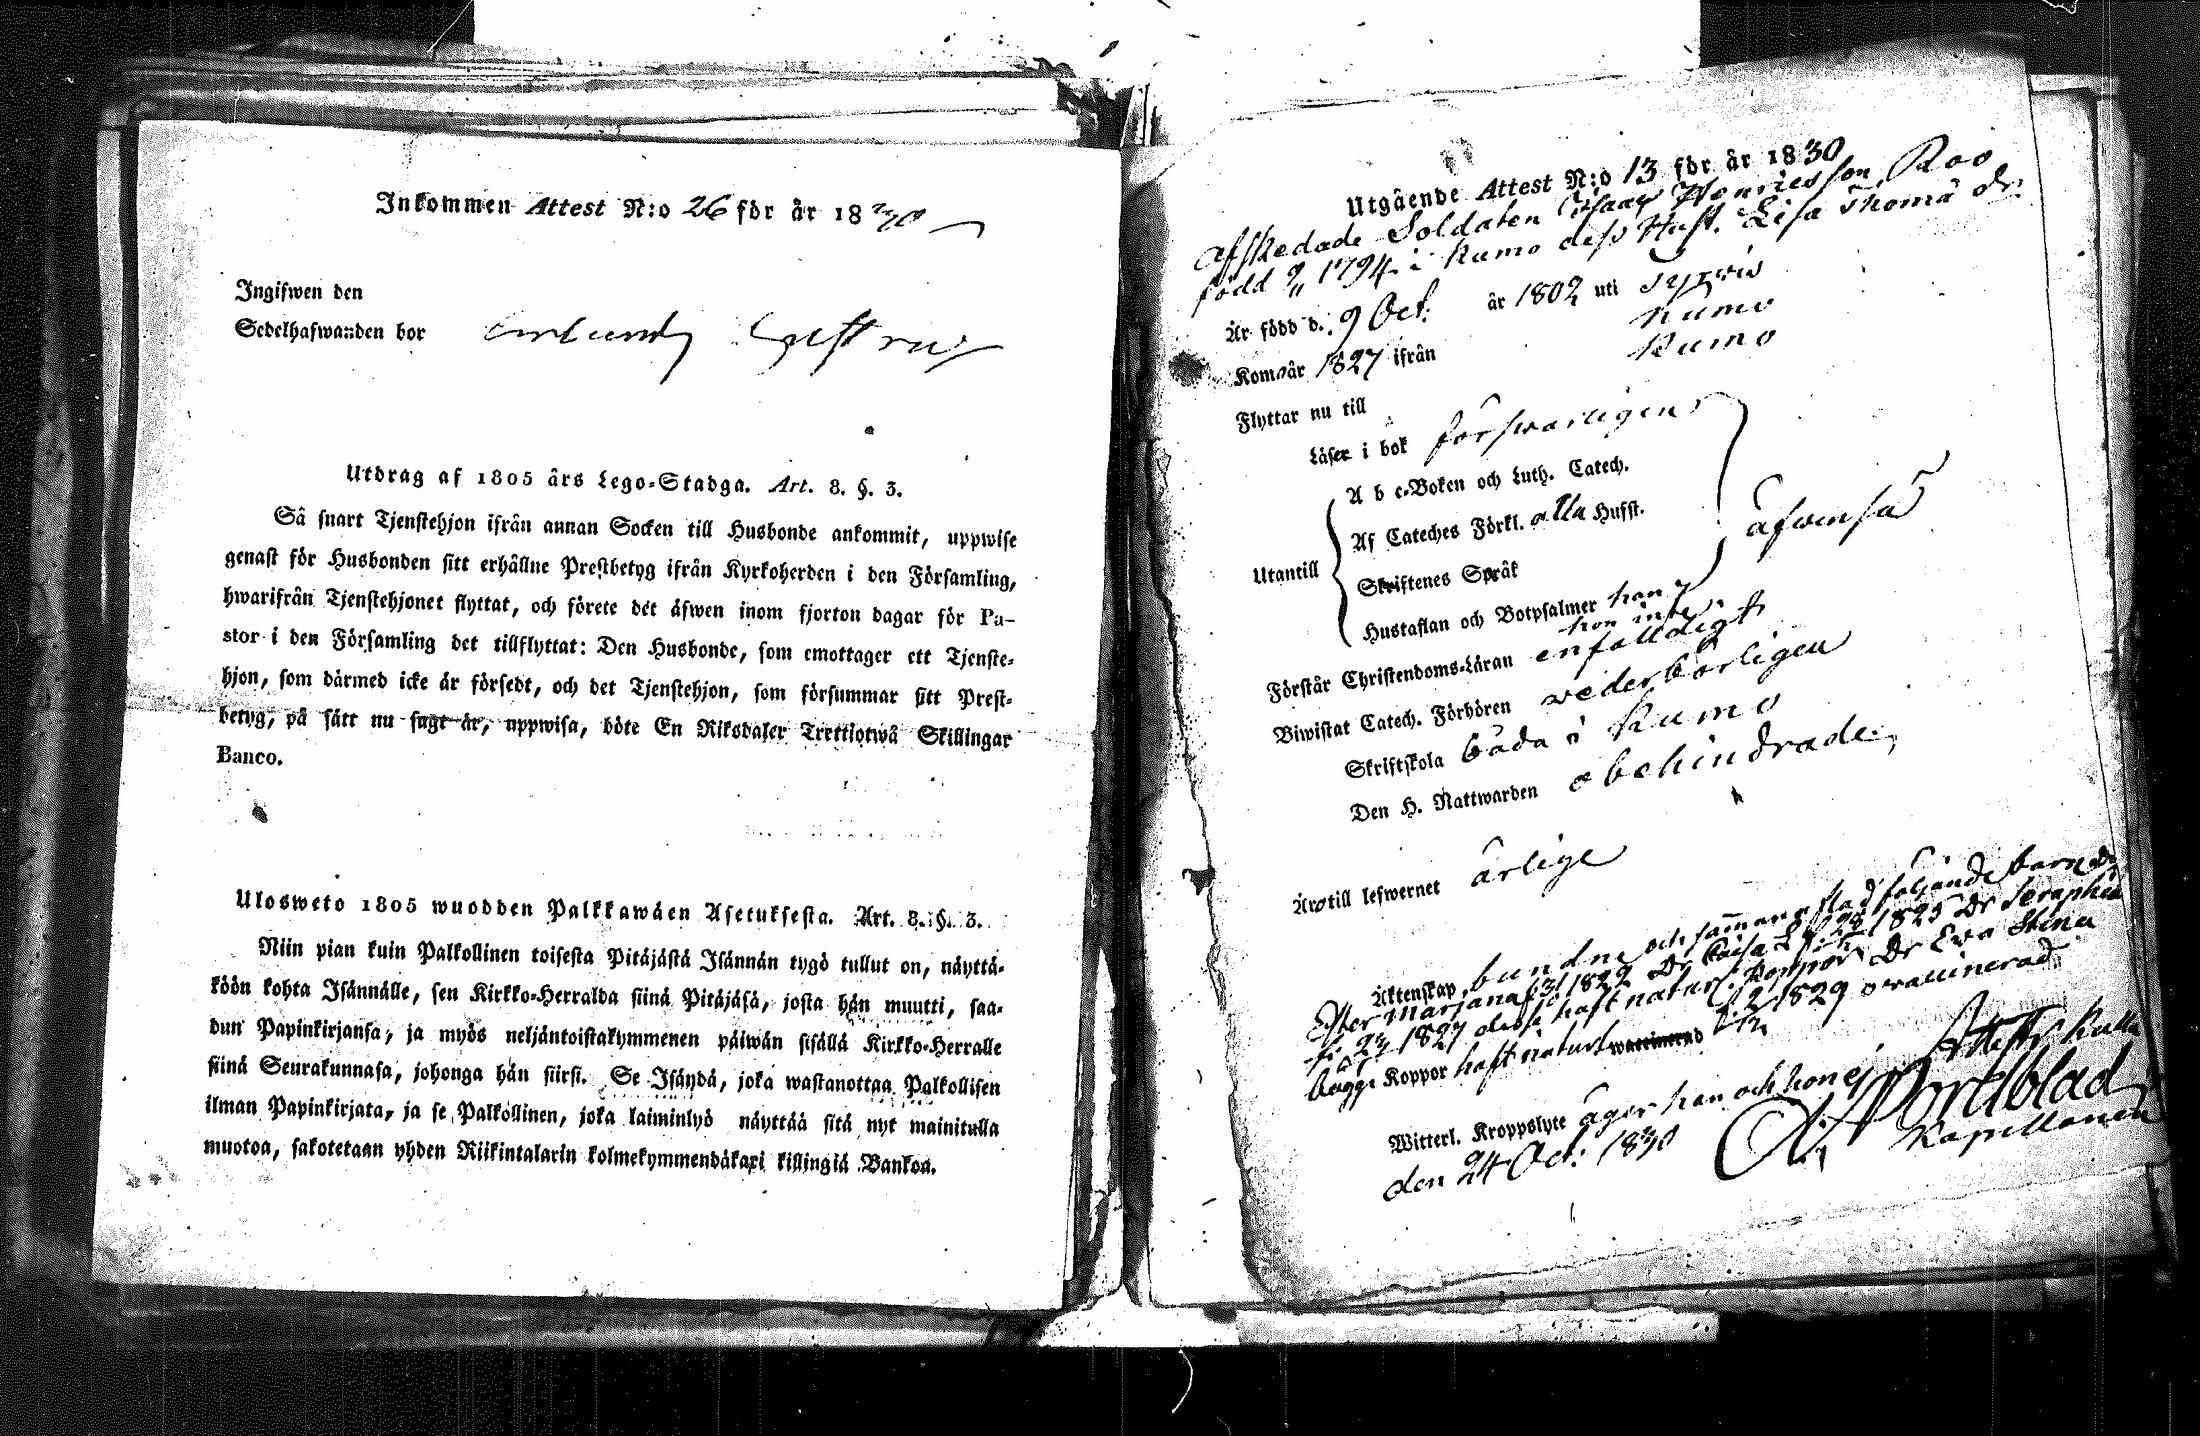 Inkommen Attest N:o 26 för år 1830
Ingifwen den
Sedelhafwanden bor
Utdrag af 1805 års Lego-Stadga. Art. 8. §. 3.
Så snart Tjenstehjon ifrån annan Socken till Husbonde ankommit, uppwise
genast för Husbonden sitt erhållne Prestbetyg ifrån Kyrkoherden i den Församling,
hwarifrån Tjenstehjonet flyttat, och förete det äfwen inom fjorton dagar för Pa-
stor i den Församling det tillflyttat: Den Husbonde, som emottager ett Tjenste-
hjon, som därmed icke är försedt, och det Tjenstehjon, som försummar sitt Prest-
betyg, på sätt nu sagt är, uppwisa, böte En Riksdaler Trettiotwå Skillingar
Banco.
Ulosweto 1805 wuodden Palkkawäen Asetuksesta. Art. 8. §. 3.
Niin pian kuin Palkollinen toisesta Pitäjästä Isännän tygö tullut on, näyttä-
köön kohta Isännälle, sen Kirkko-Herralda siinä Pitäjäsä, josta hän muutti, saa-
dun Papinkirjansa, ja myös neljäntoistakymmenen päiwän sisällä Kirkko-Herralle
siinä Seurakunnasa, johonga hän siirsi. Se Isändä, joka wastanottaa Palkollisen
ilman Papinkirjata, ja se Palkollinen, joka laiminlyö näyttää sitä nyt mainitulla
muotoa, sakotetaan yhden Riikintalarin kolmekymmendäkaxi killingiä Bankoa.
Utgående Attest N:o 13 för år 1830
Afskedade Soldaten Isaac Henricsson Roo
född 9/11 1794 i Kumo dess Hust. Lisa Thomä dr
Är född d. 9 Oct. år 1802 uti
Kom år 1827 ifrån Kumo
Flyttar nu till Kumo
Läser i bok förswarligen
Utantill
A b c-Boken och Luth. Catech.
Af Cateches Förkl. alla Husst.
äfwenså
Skriftenes Språk
Hustaflan och Botpsalmer han
hon inte
Förstår Christendoms-Läran enfaldigt
Biwistat Catech. Förhören wederbörligen
Skriftskola båda i Kumo
Den H. Nattwarden obehindrade
Äro till lefwernet ärlige
Äktenskap bundne och sammanaflad följande barn Dr
Ester Marjana 1822 Dr Caisa 1825 Dr Seraphia
1827 dessa haft naturl. koppor Dr Eva Stina
1829 owaccinerad
bägge Koppor haft naturl
Witterl. Kroppslyte äger han och hon ej
Attest. Kulla
den 24 Oct: 1830
Kapellanen